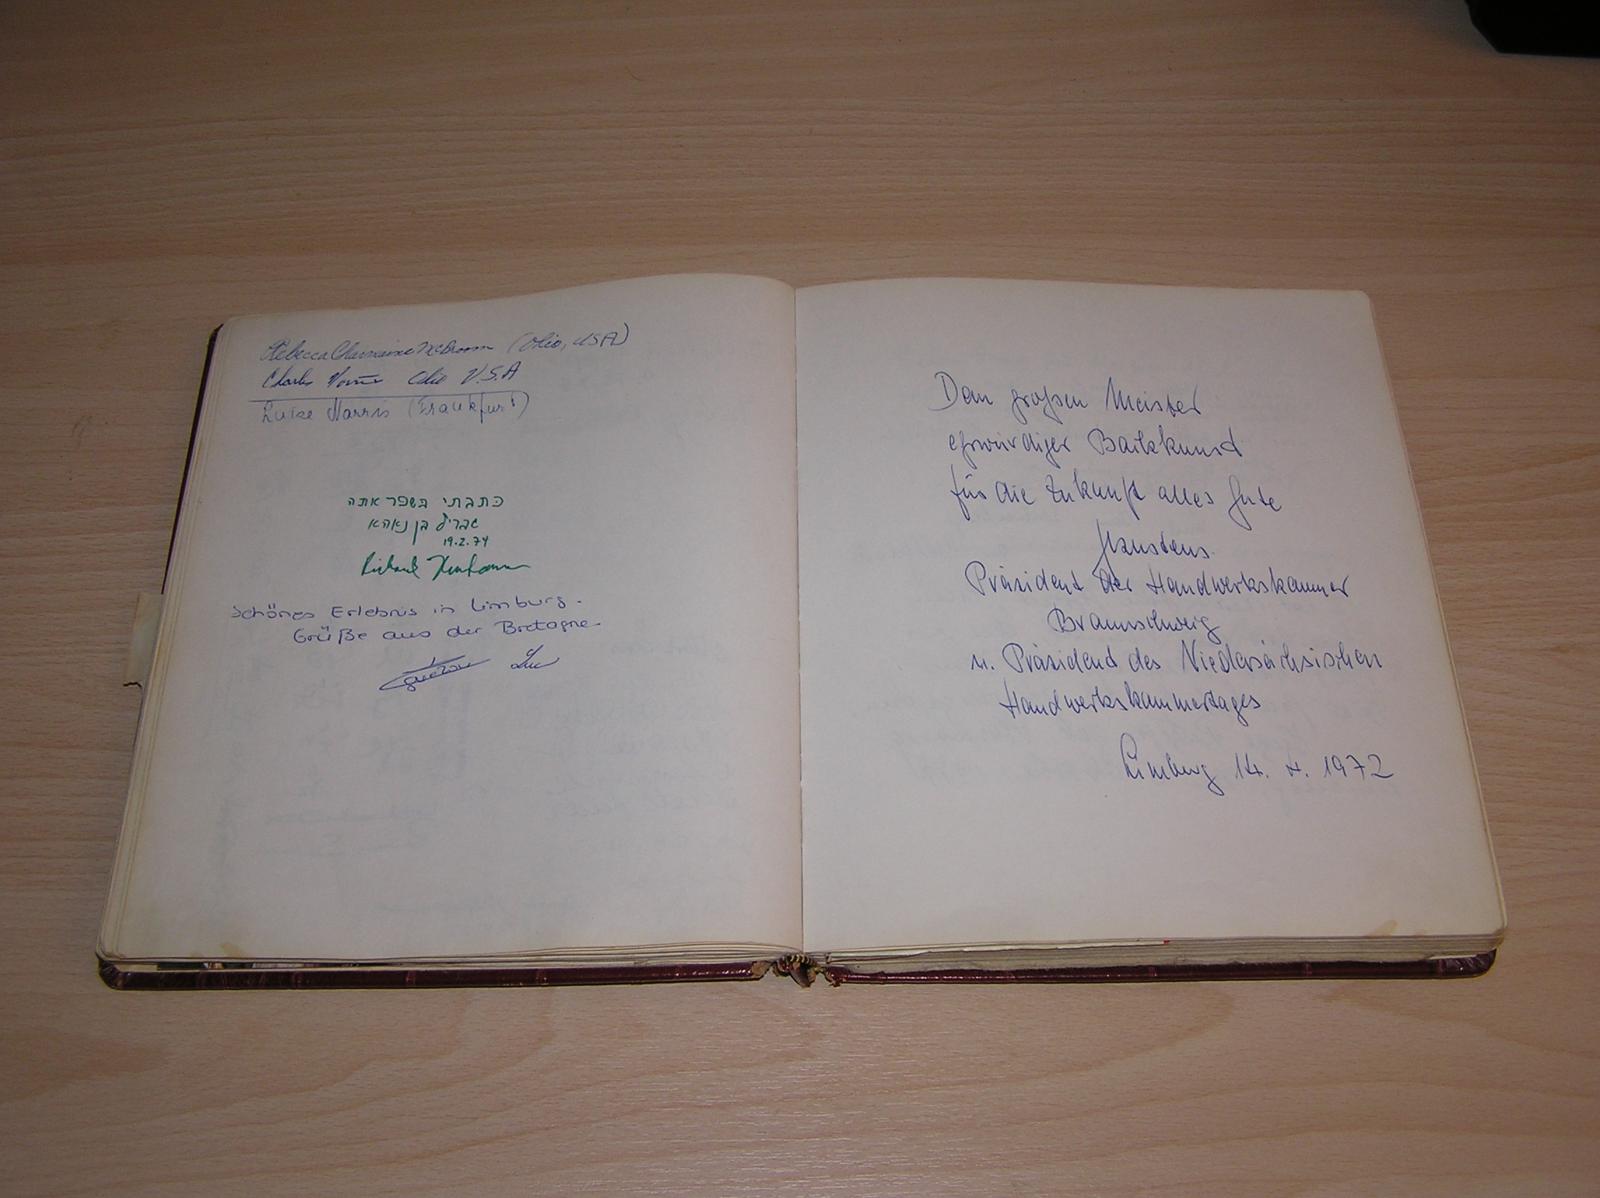 Rebecca Charmaine McBroom (Ohio, USA)
Charles Ohio U.S.A
Luise Harris (Frankfurt)
כתבתי בספר אתה
בן
19.2.74
Richard
Schönes Erlebnis in Limburg.
Grüße aus der Bretagne
Luc
Dem großen Meister
ehrwürdiger Backkunst
für die Zukunft alles Gute
Präsident der Handwerkskammer
Braunschweig
u. Präsident des Niedersächsischen
Handwerkskammertages
Limburg 14. 4. 1972